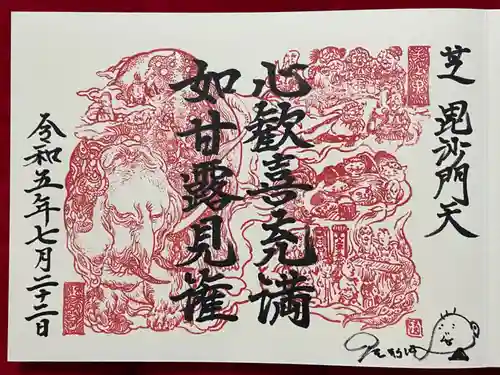 芝 毘沙門天
心歓喜充満
如甘露見灌
令和五年七月二十二日